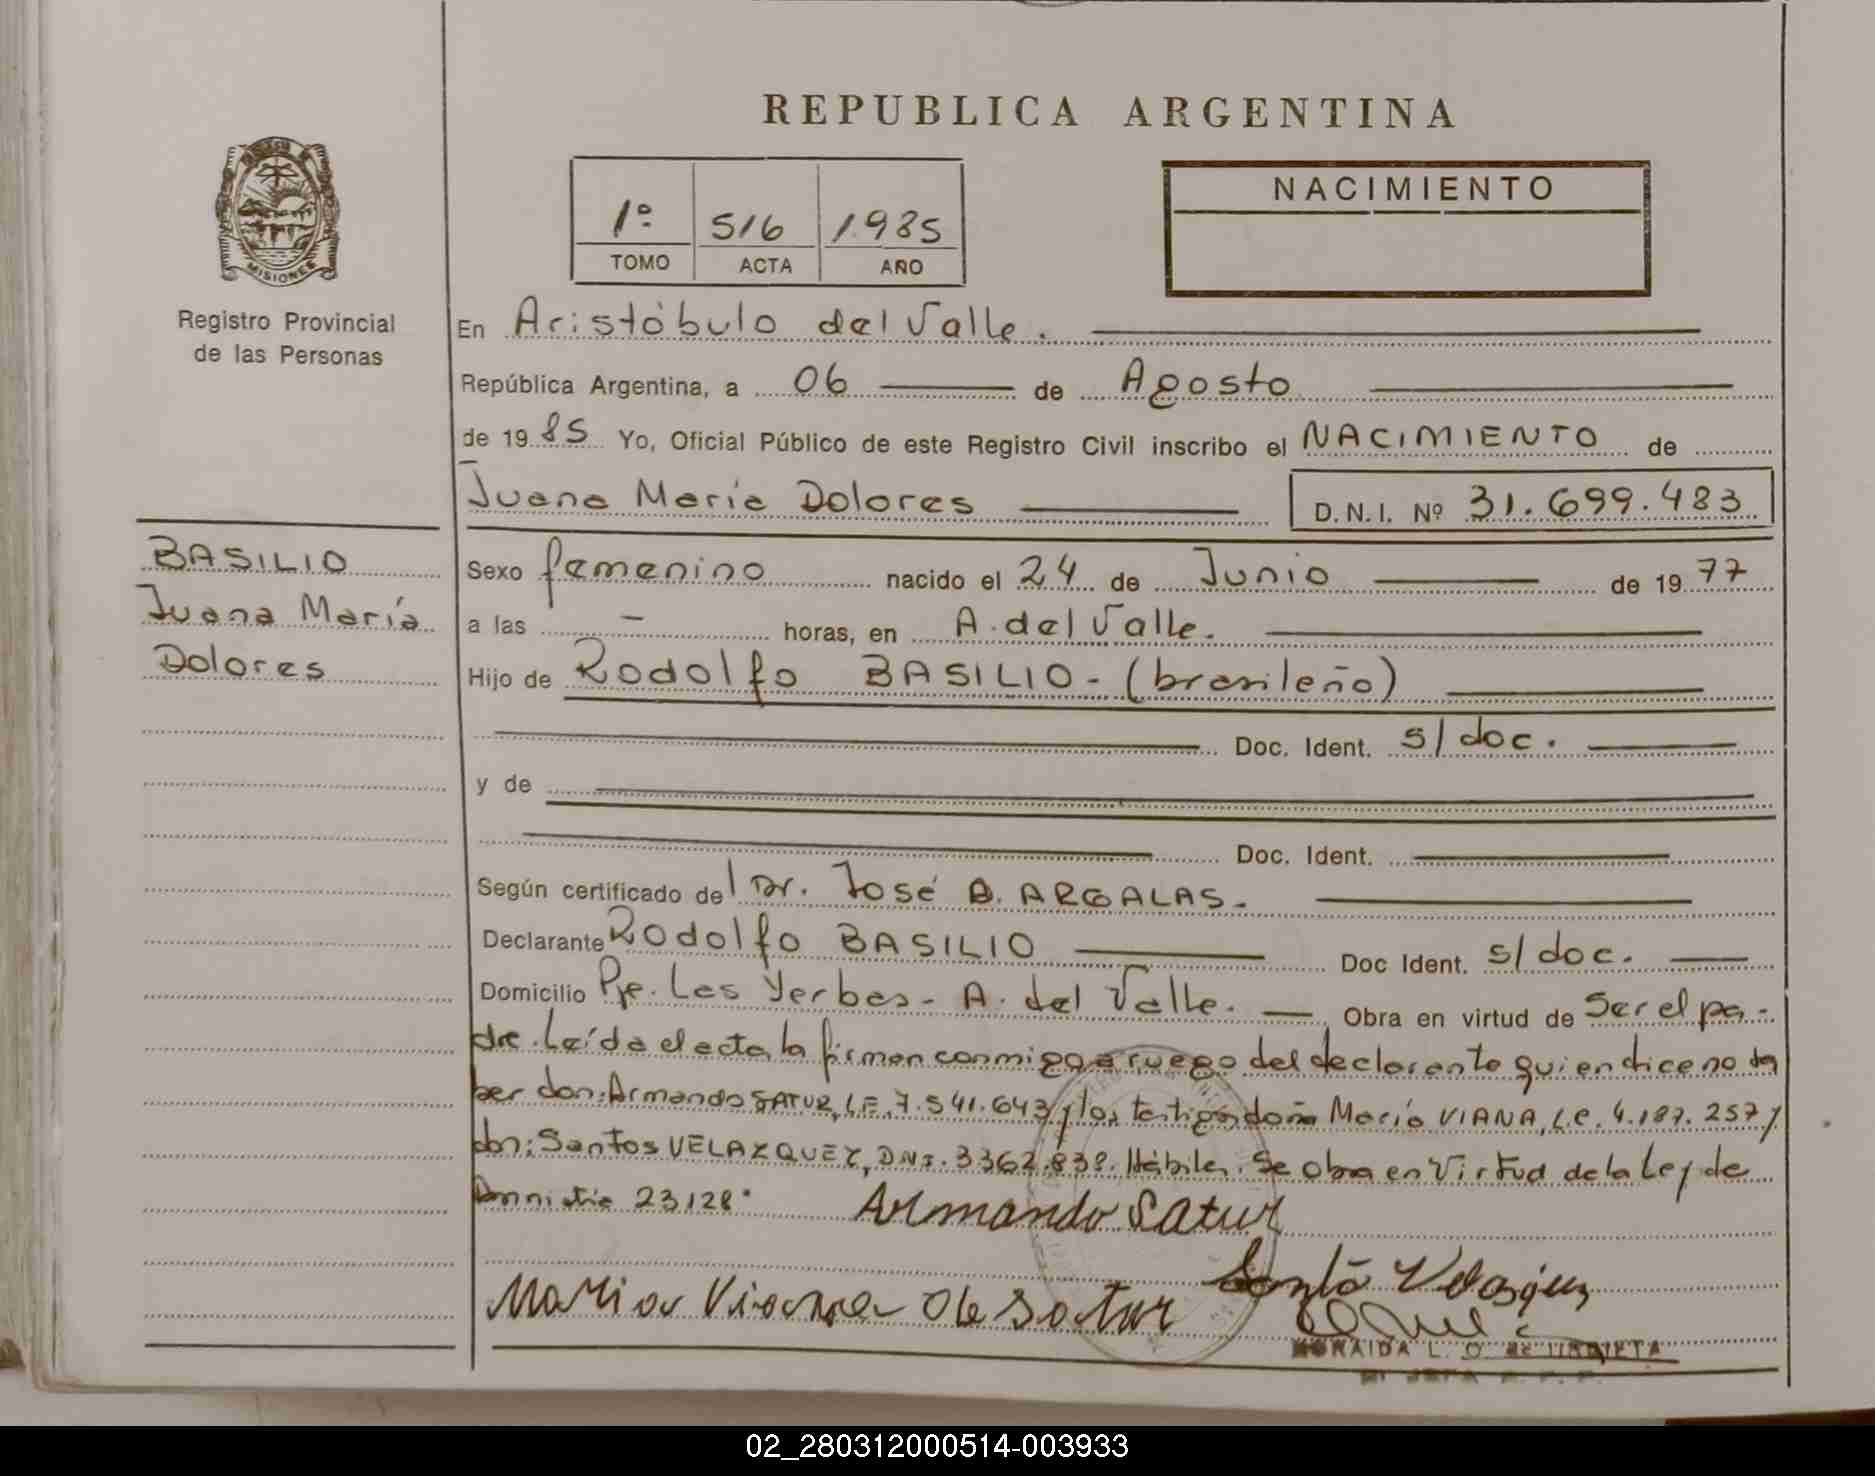 REPUBLICA ARGENTINA
MISIONES
Registro Provincial
de las Personas
1º 516 1985
TOMO ACTA AÑO
NACIMIENTO
En Aristóbulo del Valle.
República Argentina, a 06 de Agosto
de 1985 Yo, Oficial Público de este Registro Civil inscribo el NACIMIENTO de
Juana María Dolores D.N.I. Nº 31.699.483
BASILIO
Juana María
Dolores
Sexo femenino nacido el 24 de Junio de 1977
a las — horas, en A. del Valle.
Hijo de Rodolfo BASILIO - (brasileño)
Doc. Ident. s/doc.
y de
Doc. Ident.
Según certificado del Dr. José B. ARGALAS.
Declarante Rodolfo BASILIO Doc Ident. s/doc.
Domicilio Pje. Las Yerbas - A. del Valle. Obra en virtud de Ser el pa-
dre. Leída el acta la firman conmigo a ruego del declarante quien dice no sa
ber don: Armando SATUR, L.E. 7.541.643 y los testigos doña María VIANA, L.C. 4.187.257 y
don: Santos VELAZQUEZ, DNI. 3362.838. Hábiles. Se obra en Virtud de la Ley de
Amnistia 23128.
Armando Satur
Santo Velasquez
Maria Viana de Satur
L. O. de URRIETA
02_280312000514-003933